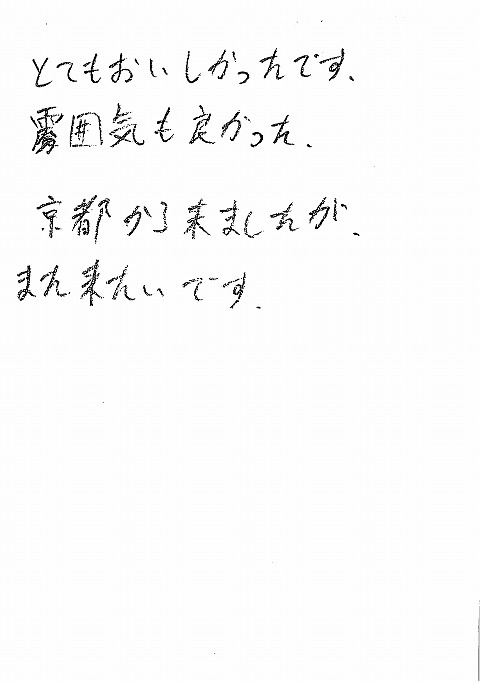 とてもおいしかったです、
雰囲気も良かった、
京都から来ましたが、
また来たいです、